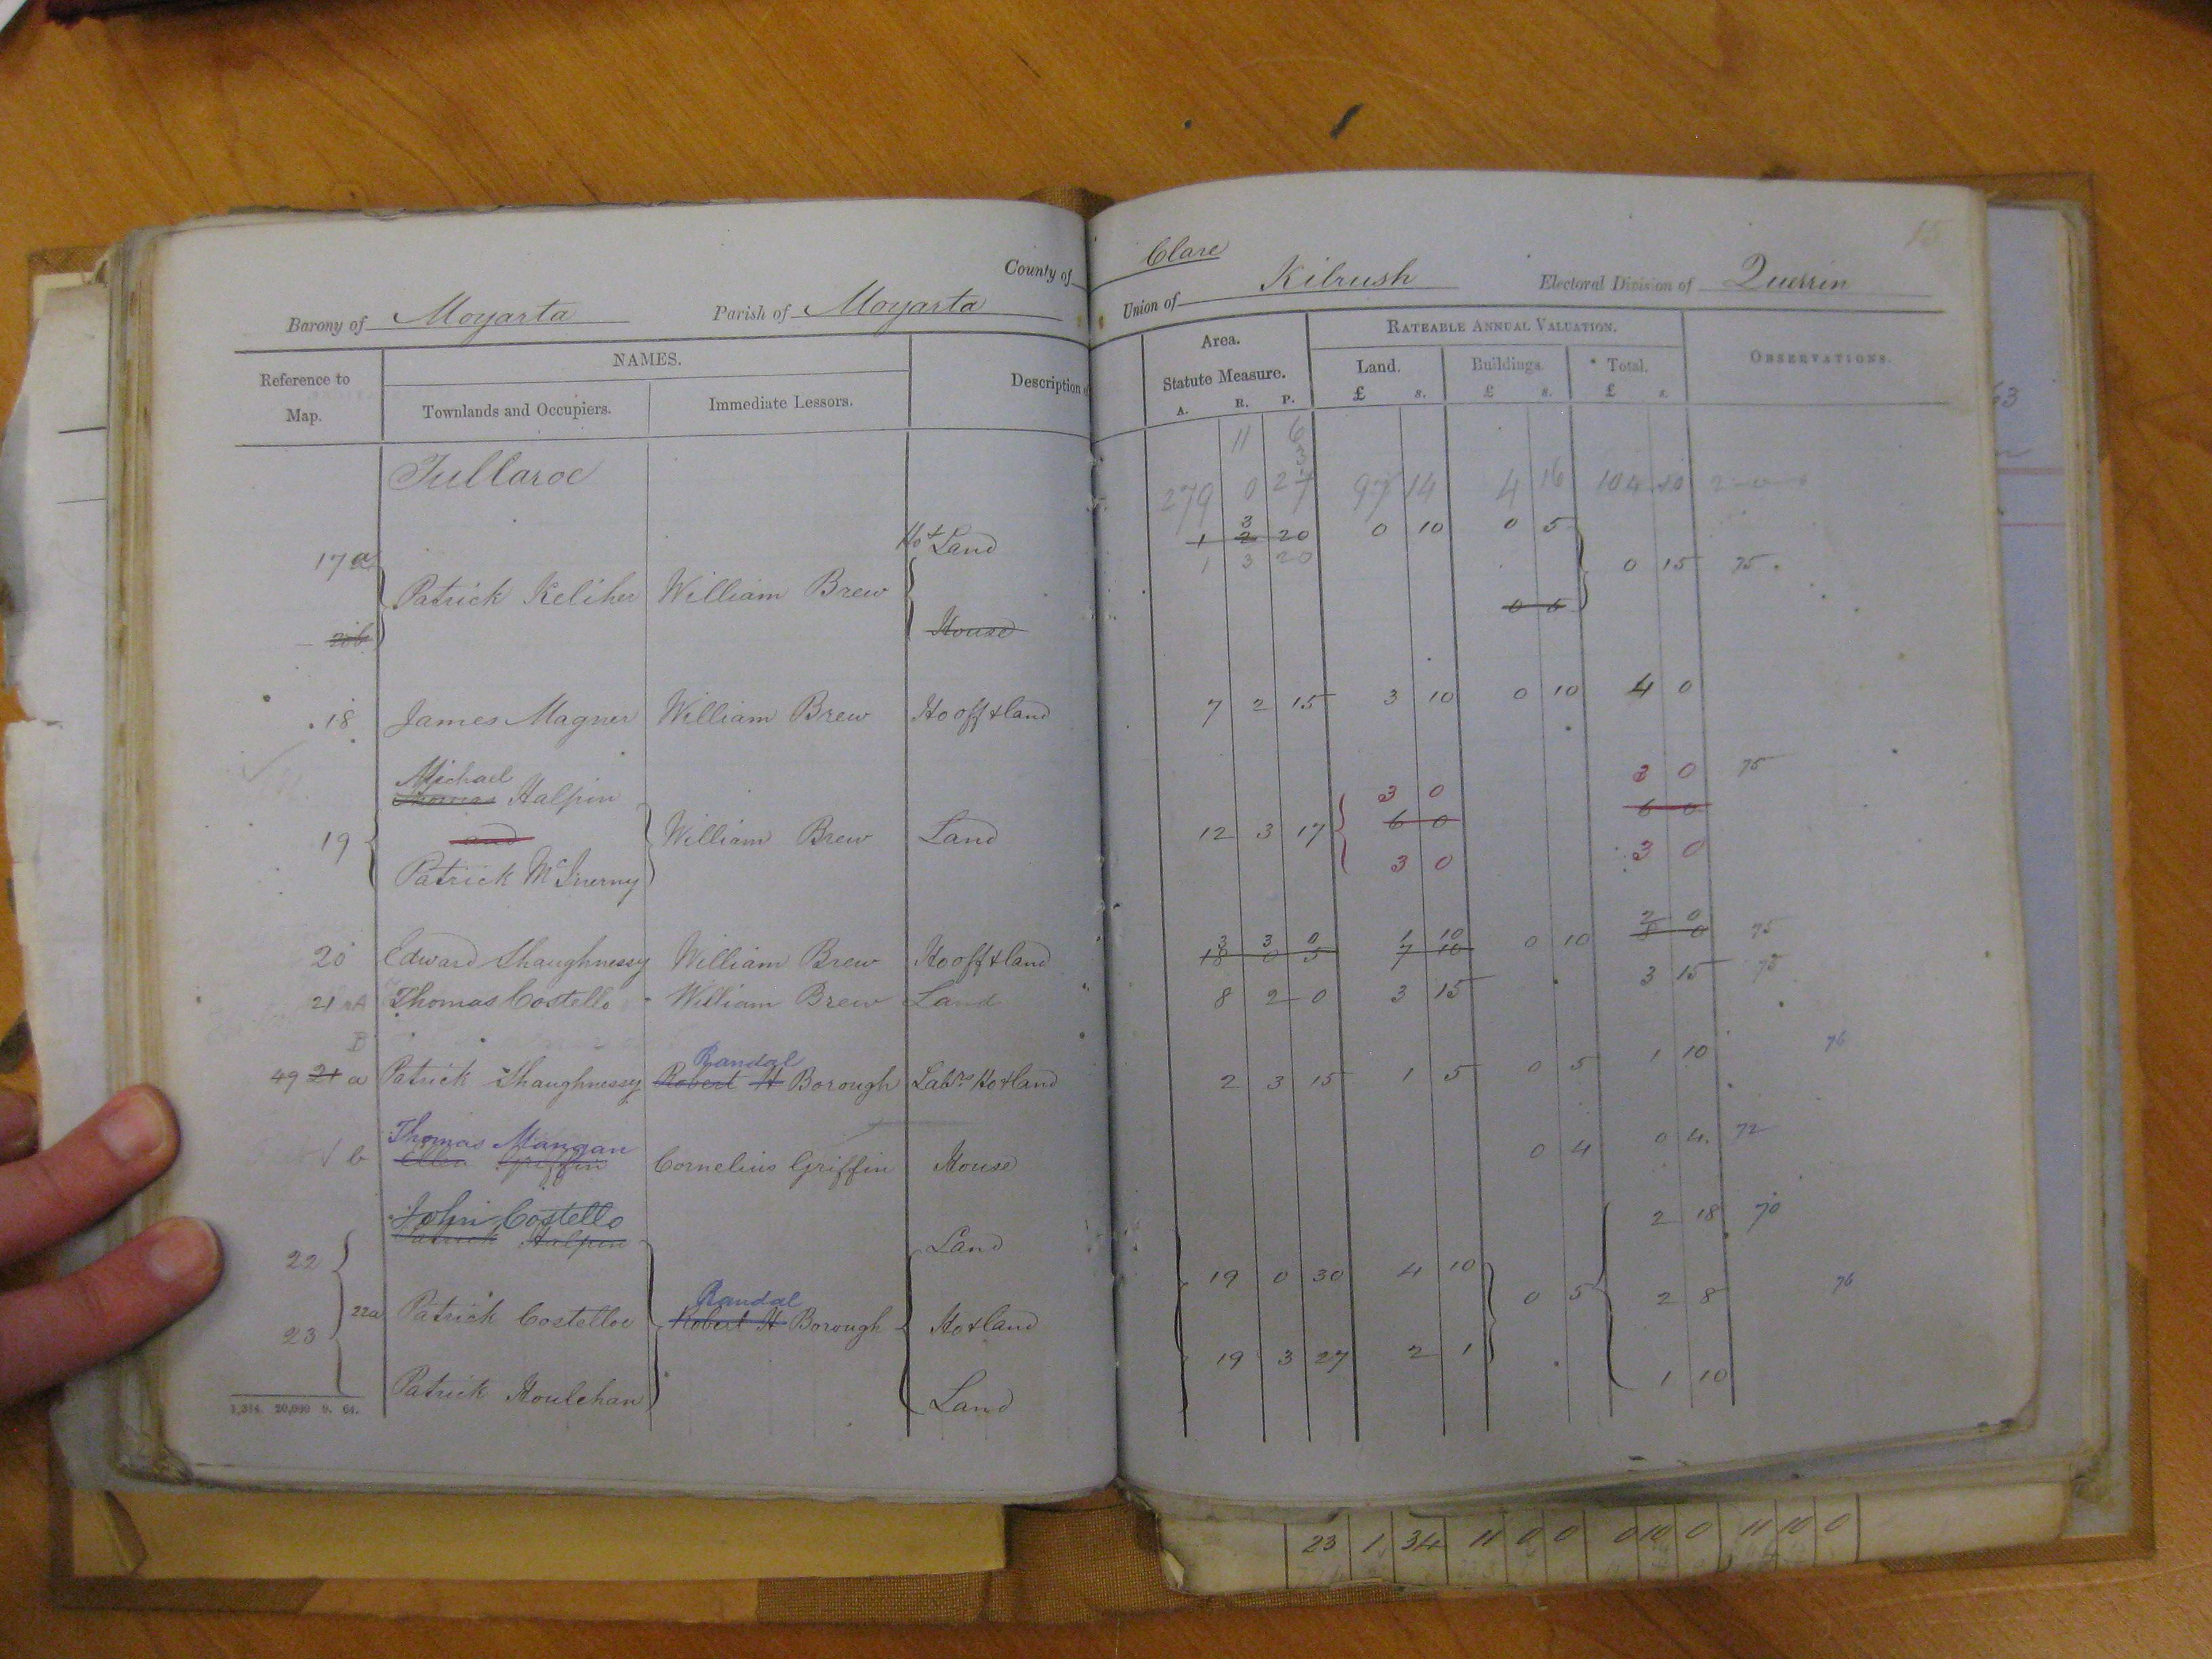 County of Clare
15
Barony of Moyarta Parish of Moyarta Union of Kilrush Electoral Division of Querrin
Reference to Map. NAMES. Description of Area. RATEABLE ANNUAL VALUATION. OBSERVATIONS.
Townlands and Occupiers. Immediate Lessors. Statute Measure. Land. Buildings. Total.
A. R. P. £ s. £ s. £ s.
11 6
3
Tullaroe
279 0 27 97 14 4 16 104 10
3
17 a Ho & Land 1 2 20 0 10 0 5
1 3 20
Patrick Keliher William Brew 0 15 75
20b House 0 5
18 James Magner William Brew Ho off & land 7 2 15 3 10 0 10 4 0
Michael 3 0 75
Thomas Halpin 3 0
6 0 6 0
19 and William Brew Land 12 3 17
Patrick McInerny 3 0 3 0
3 3 0 1 10 2 0
20 Edward Shaughnessy William Brew Ho off & land 18 0 5 7 10 0 10 8 0 75
21 A Thomas Costello William Brew Land 8 2 0 3 15 3 15 75
B
Randal 76
49 21 a Patrick Shaughnessy Robert H Borough Labrs Ho & land 2 3 15 1 5 0 5 1 10
Thomas Mangan
b Ellen Griffin Cornelius Griffin House 0 4 0 4 72
John Costello
Patrick Halpin Land 2 18 70
22 19 0 30 4 10
Randal
22a Patrick Costelloe Robert H Borough Ho & land 0 5 2 8 76
23 19 3 27 2 1
Patrick Houlehan Land 1 10
1,334. 20,000 9. 64.
23 1 34 11 0 0 0 10 0 11 10 0